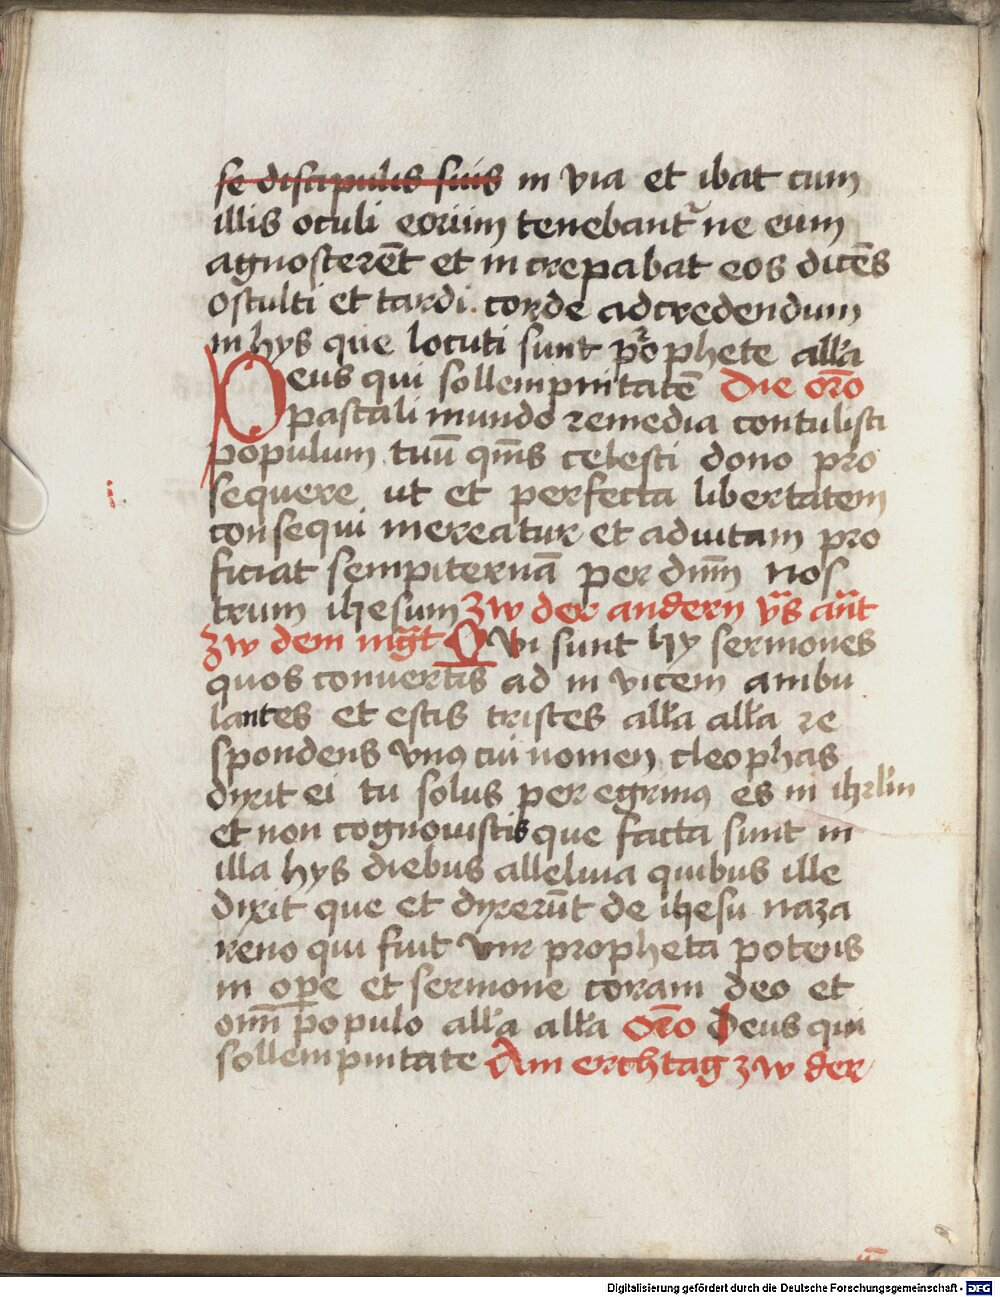 se discipulis suis in via et ibat cum
illis oculi eorum tenebant᷑ ne eum
agnoscerēt et in crepabat eos dicēs
o stulti et tardi corde ad credendum
in hys que locuti sunt ꝓphete alła
Deus qui sollempnitatē Die or̄o
pascali mundo remedia contulisti
populum tuū qm̄s celesti dono pro
sequere ut et perfecta libertatem
consequi mereatur et ad vitam pro
ficiat sempiternā per dnm̄ nos
trum ihesum zw der andern v̄s ant̄
zw dem mḡt Qvi sunt hy sermones
quos convertis ad in vicem ambu
lantes et estis tristes alła alła re
spondens vnꝰ cui nomen cleophas
dixit ei tu solus peregrinꝰ es in ihrłm
et non cognouistis que facta sunt in
illa hys diebus alleluia quibus ille
dixit que et dyxerūt de ihesu naza
reno qui fuit vir propheta potens
in ope et sermone coram deo et
omī populo alła alła or̄o Deus qui
sollempnitate Am erchtag zw der
Digitalisierung gefördert durch die Deutsche Forschungsgemeinschaft - DFG